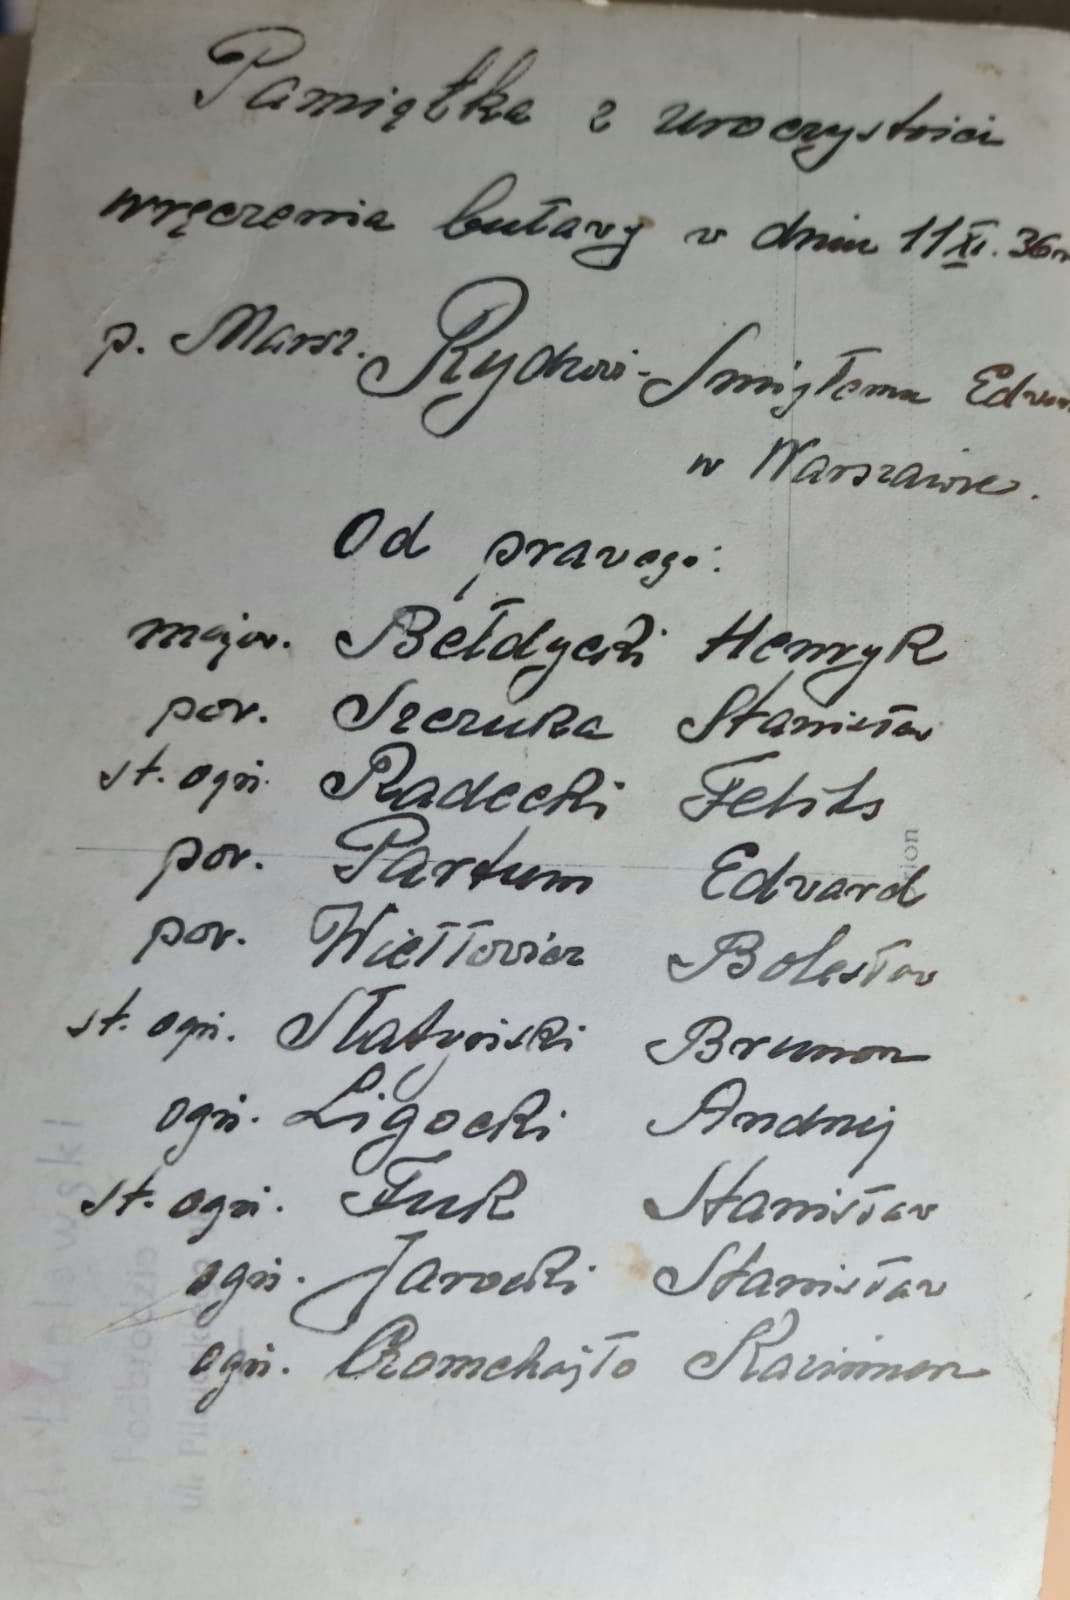 Pamiątka z uroczystości
wręczenia buławy w dniu 11 XI. 36
p. Marsz. Rydzowi-Śmigłemu
w Warszawie.
Od prawego:
major. Bełdycki Henryk
por. Szczuka Stanisław
st. ogn. Radecki Feliks
por. Partum Edward
por. Bolesław
st. ogn. Brunon
ogn. Ligocki Andrzej
st. ogn. Fuk Stanisław
ogn. Jarocki Stanisław
ogn. Kazimierz
Podbrodzie